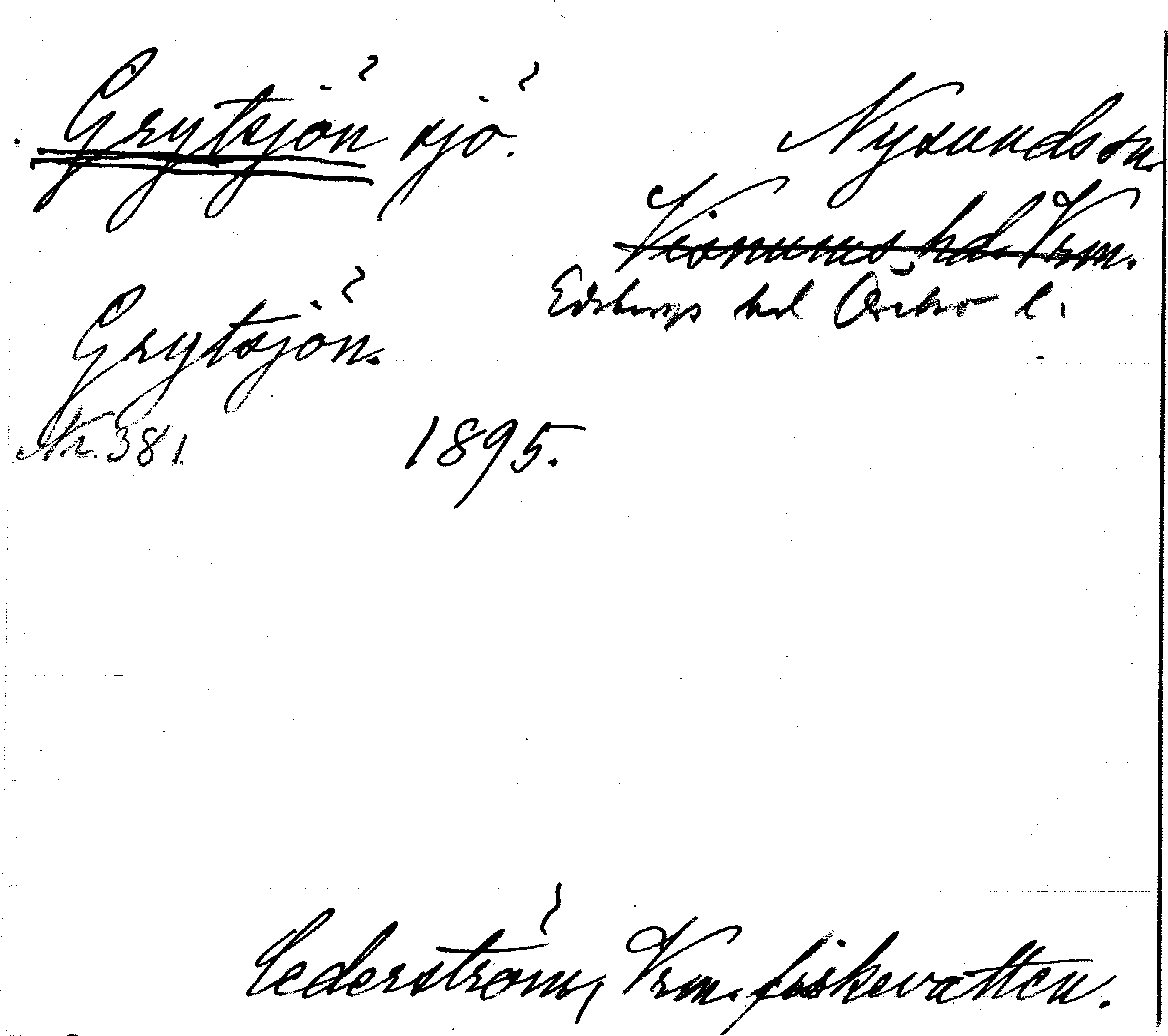 Grytsjön sjö.
Nysunds sn.
Visnums hd. Vrm.
Edsbergs hd Örebro l.
Grytsjön.
Nr. 381. 1895.
Cederström, Vrm. fiskevatten.